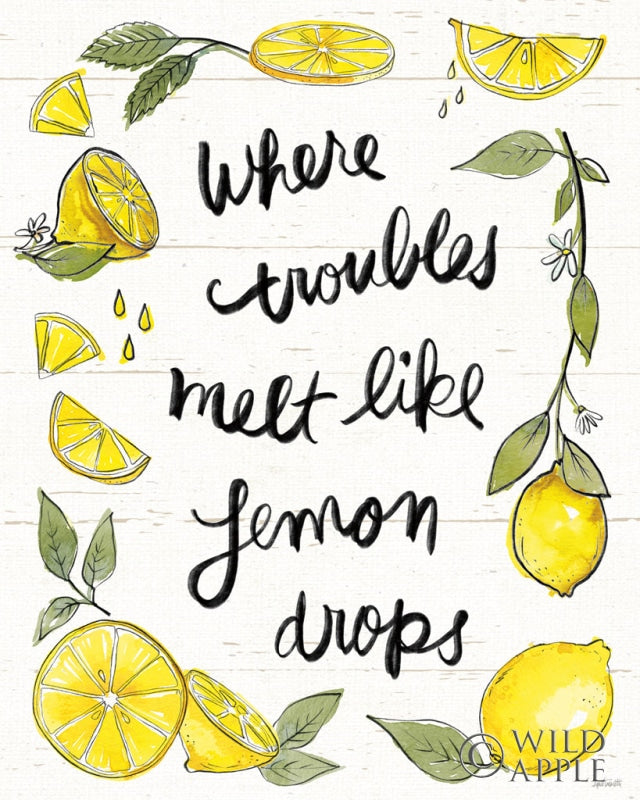 Where
troubles
melt like
lemon
drops
© WILD
APPLE